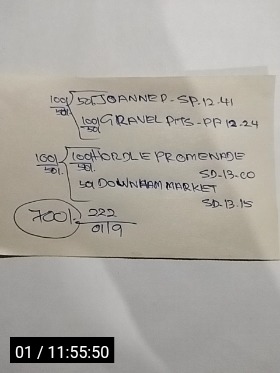 100/ 50/ JOANNED - SP. 12.41
50/.
100/ GRAVEL PITS - PP 12.24
50/
100/ 100/ HORDLE PROMENADE
50/. 50/ SD-13-00
50/ DOWNHAM MARKET
SD.13.15
700/. 222
0119
01 / 11:55:50